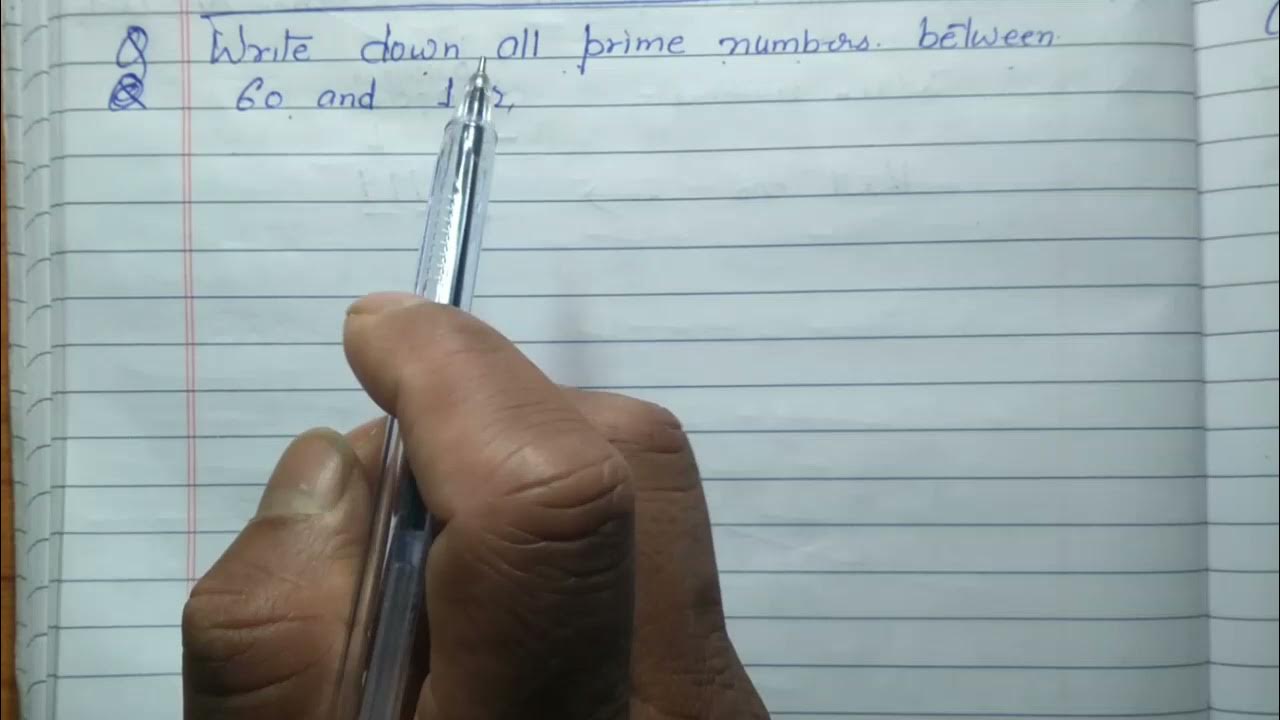 Q Write down all prime numbers. between.
Q 60 and